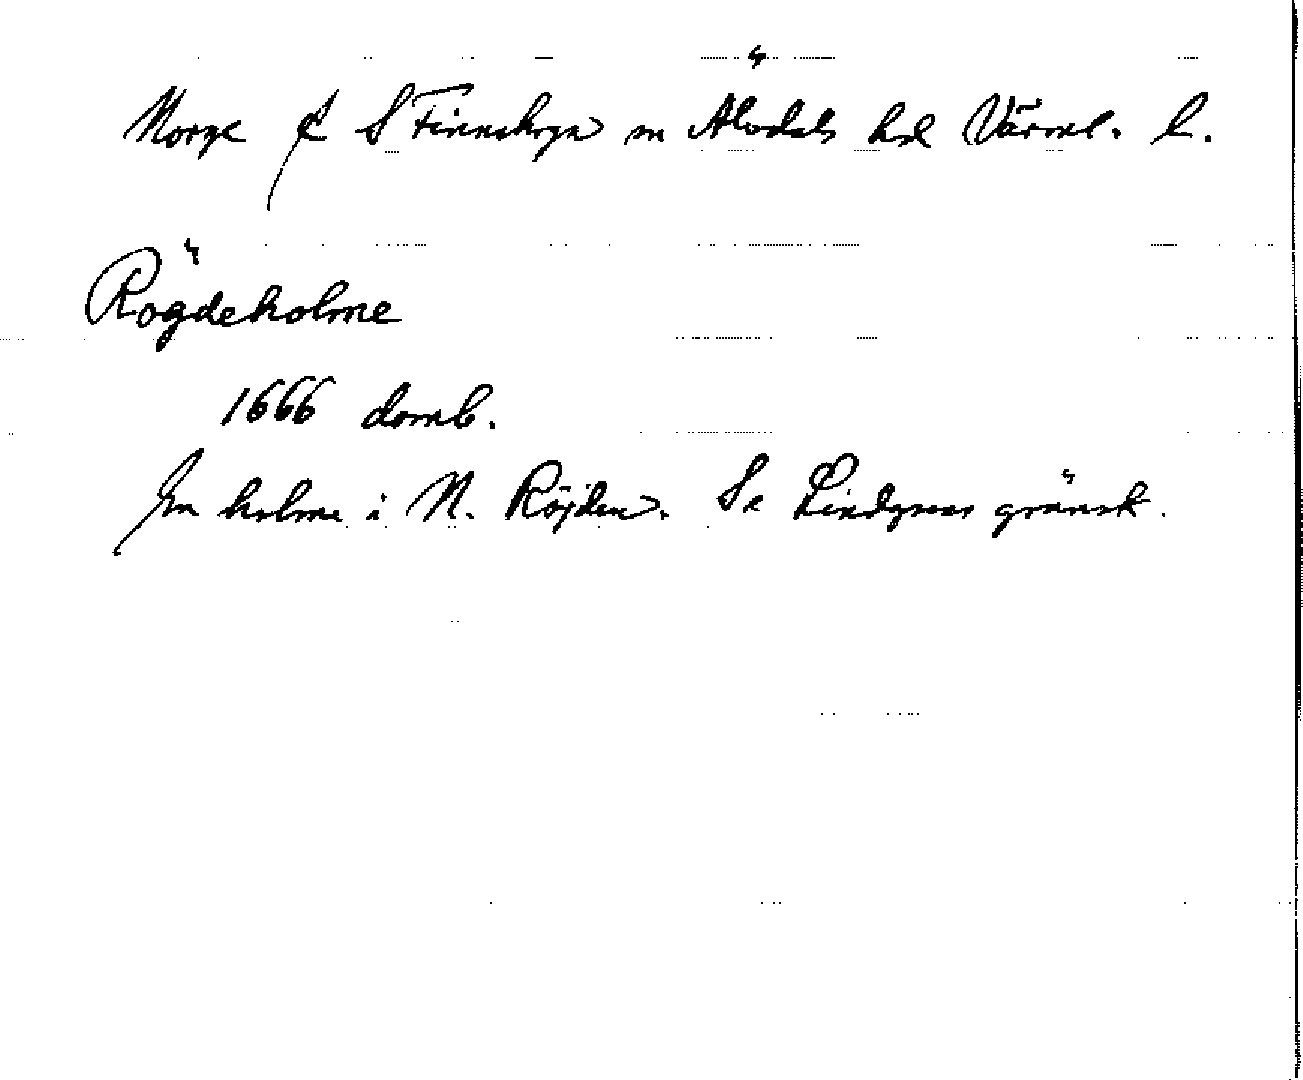 Norge & S Finnskoga sn Älvdals hd Värml. l.
Rögdeholme
1666 domb.
En holme i N. Röjden. Se Lindgrens gränsk.